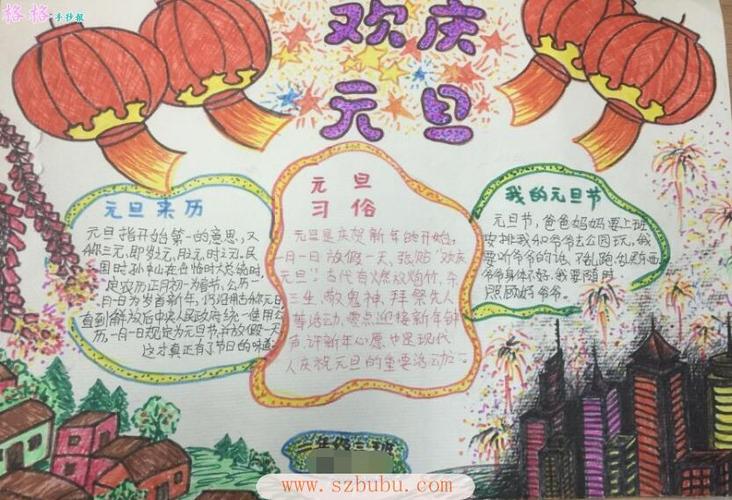 格格手抄报
欢庆
元旦
元旦来历
元旦指开始第一的意思，又
称三元，即岁元，月元，时元。民
国时孙中山在南京时大总统时，
定农历正月初一为春节，公历一
月一日为岁首新年，仍沿用古称元旦
直到解放后中央人民政府统一使用公
历，一月一日规定为元旦节，并放假一天
这才真正有了节日的味道
元旦
习俗
元旦是庆贺新年的开始。
一月一日放假一天，张贴“欢庆
元旦”。古代有燃放炮竹，杀
三生，敬鬼神，拜祭先人
等活动，零点迎接新年钟
声，许新年心愿，也是现代
人庆祝元旦的重要活动
我的元旦节
元旦节，爸爸妈妈要上班
安排我和爷爷去公园玩，我
要听爷爷的话，不乱跑，乱买东西
爷爷身体不好，我要随时
照顾好爷爷。
二年级二班
www.szbubu.com